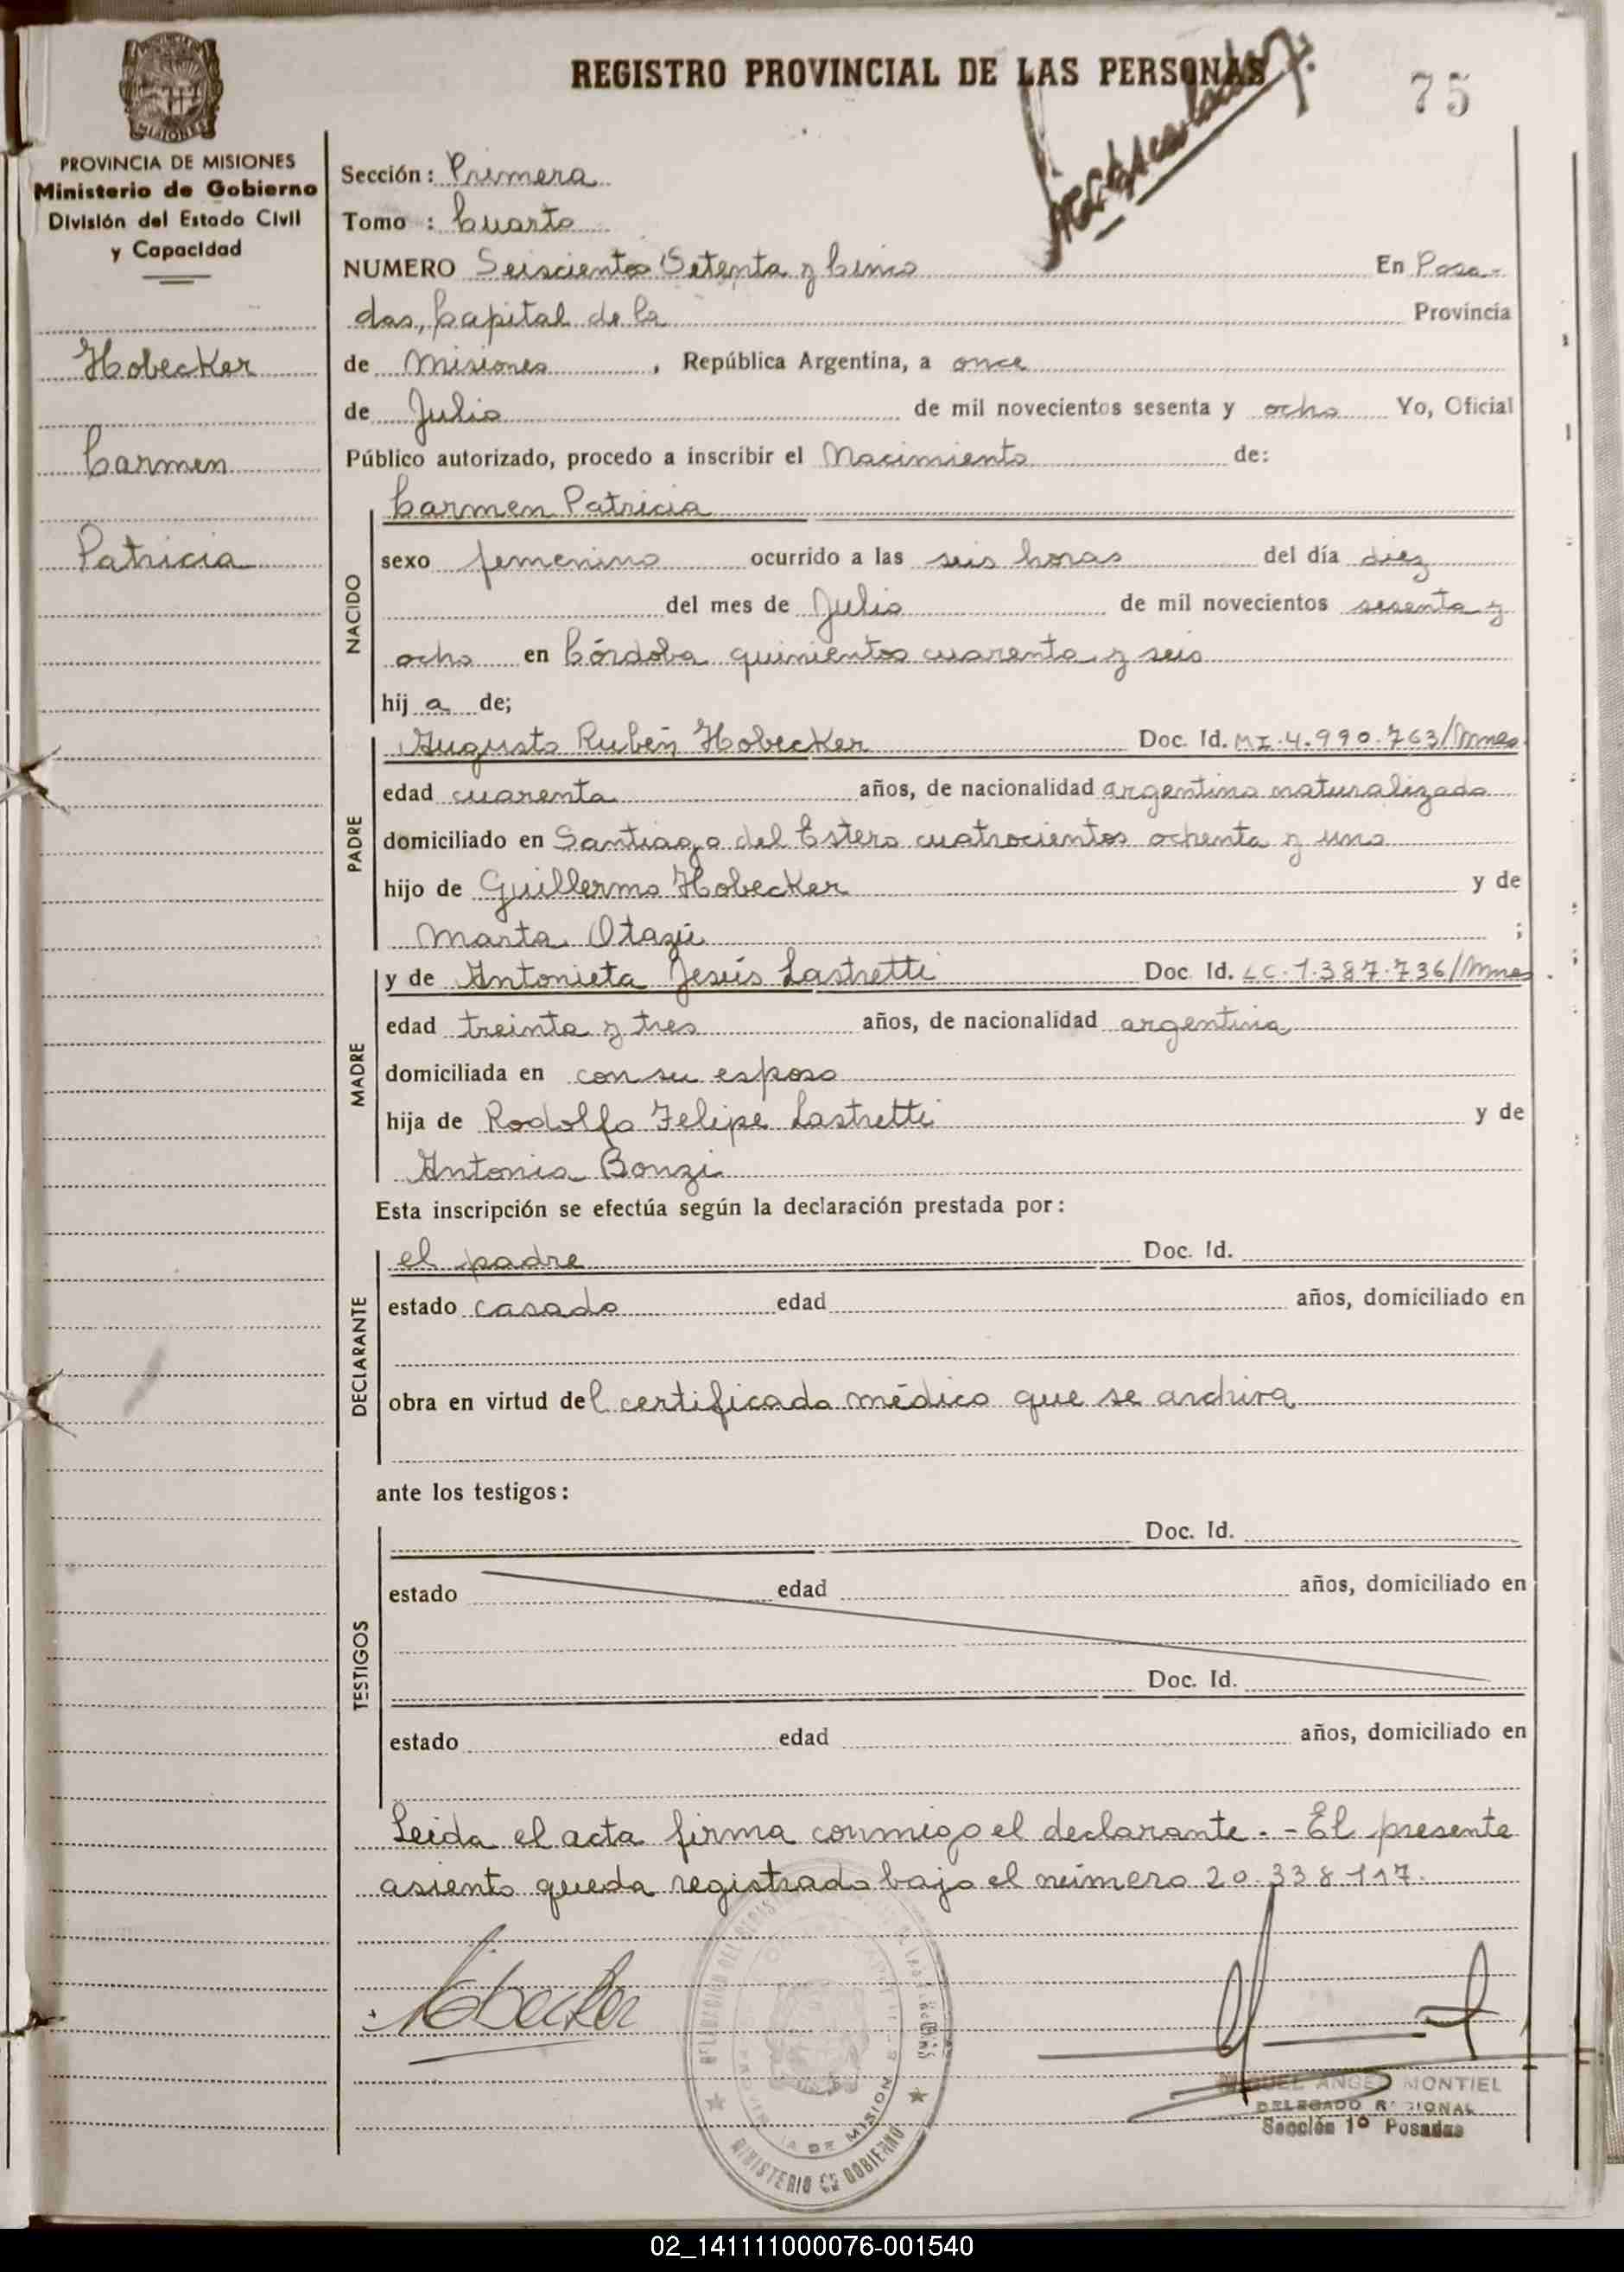 REGISTRO PROVINCIAL DE LAS PERSONAS
75
MISIONES
PROVINCIA DE MISIONES
Ministerio de Gobierno
División del Estado Civil
y Capacidad
Hobecker
Carmen
Patricia
Sección: Primera
Tomo : Cuarto
NUMERO Seiscientos Setenta y Cinco En Posa-
das, Capital de la Provincia
de Misiones, República Argentina, a once
de Julio de mil novecientos sesenta y ocho Yo, Oficial
Público autorizado, procedo a inscribir el Nacimiento de:
NACIDO
Carmen Patricia
sexo femenino ocurrido a las seis horas del día diez
del mes de Julio de mil novecientos sesenta y
ocho en Córdoba quinientos cuarenta y seis
hij a de;
PADRE
Augusto Rubén Hobecker Doc. Id. MI.4.990.763/Mnes.
edad cuarenta años, de nacionalidad argentino naturalizado
domiciliado en Santiago del Estero cuatrocientos ochenta y uno
hijo de Guillermo Hobecker y de
Marta Otazú ;
MADRE
y de Antonieta Jesús Lastretti Doc Id. LC.1.387.736/Mnes.
edad treinta y tres años, de nacionalidad argentina
domiciliada en con su esposo
hija de Rodolfo Felipe Lastretti y de
Antonia Bonzi
Esta inscripción se efectúa según la declaración prestada por:
DECLARANTE
el padre Doc. Id.
estado casado edad años, domiciliado en
obra en virtud del certificado médico que se archiva
ante los testigos:
TESTIGOS
Doc. Id.
estado edad años, domiciliado en
Doc. Id.
estado edad años, domiciliado en
Leida el acta firma conmigo el declarante. - El presente
asiento queda registrado bajo el número 20.338.117.
Hobecker
MINISTERIO DE GOBIERNO
MIGUEL ANGEL MONTIEL
DELEGADO REGIONAL
Sección 1º Posadas
02_141111000076-001540